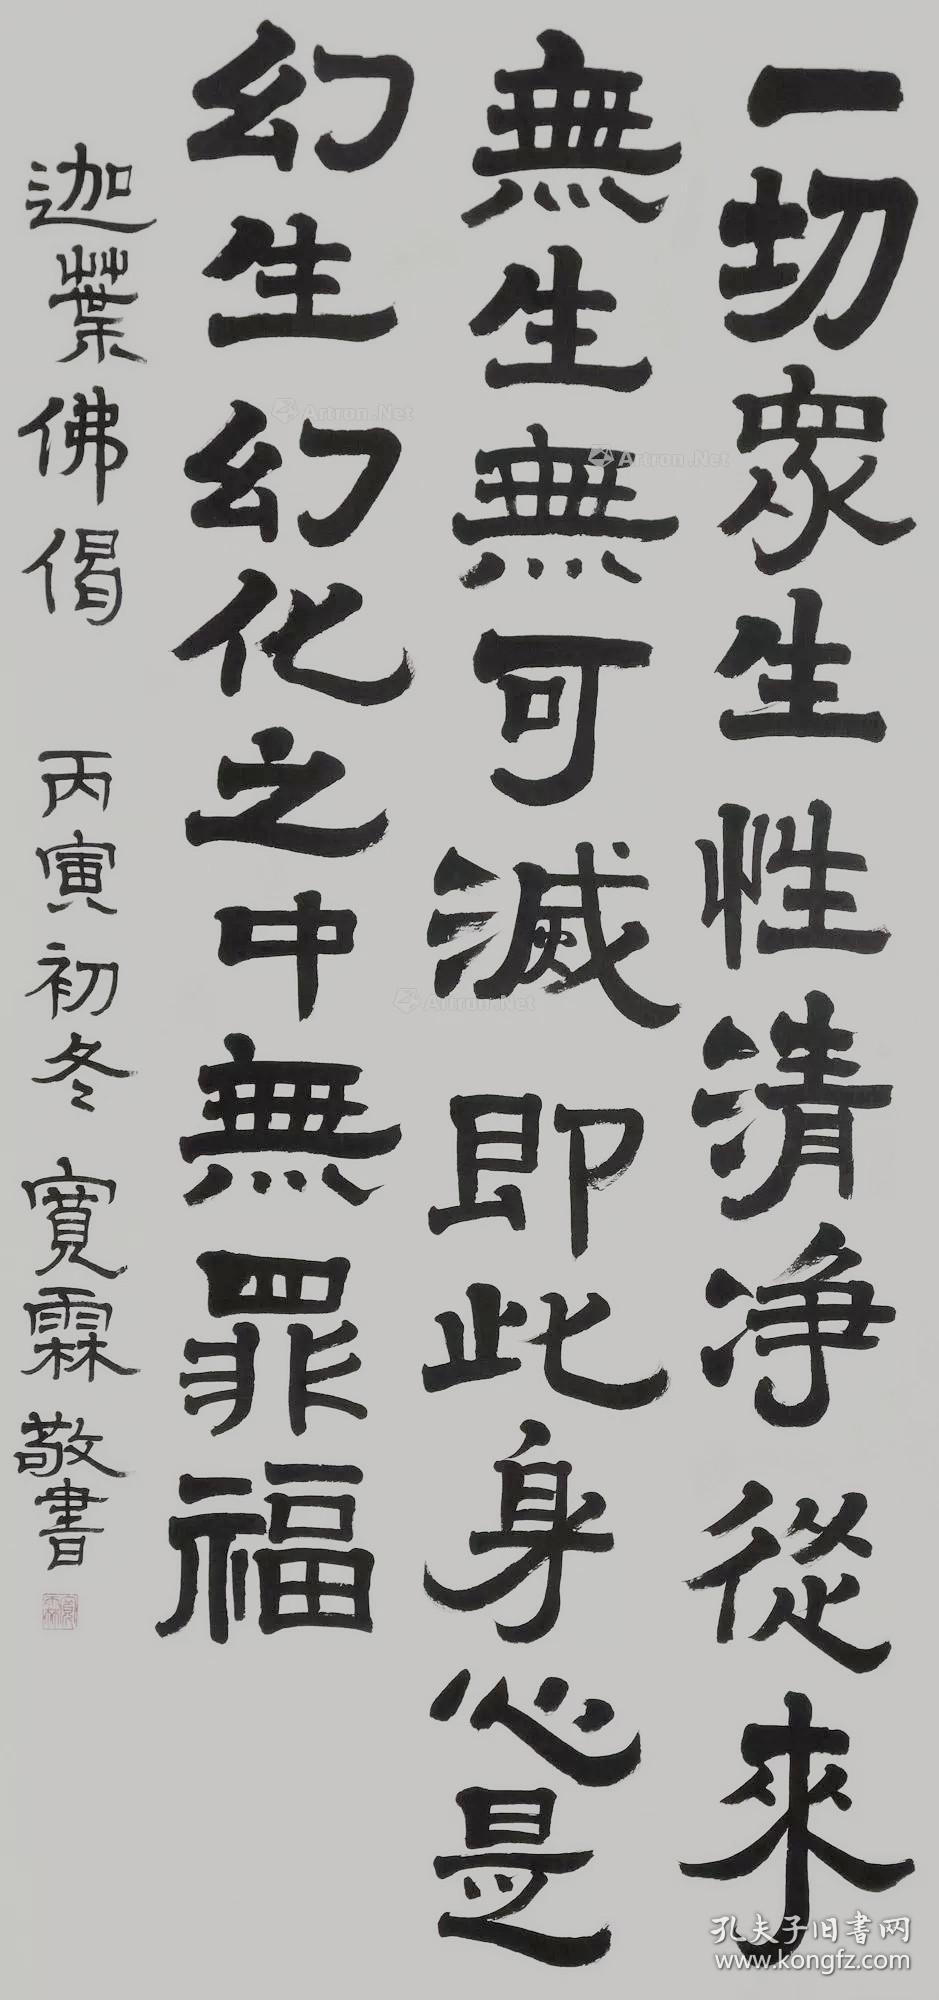 一切眾生性清净從來
無生無可滅即此身心是
幻生幻化之中無罪福
迦葉佛偈
丙寅初冬寬霖敬書
Artron.Net
Artron.Net
Artron.Net
孔夫子旧書网
www.kongfz.com